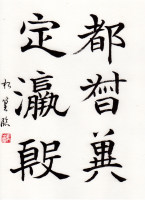 都督冀
定瀛殷